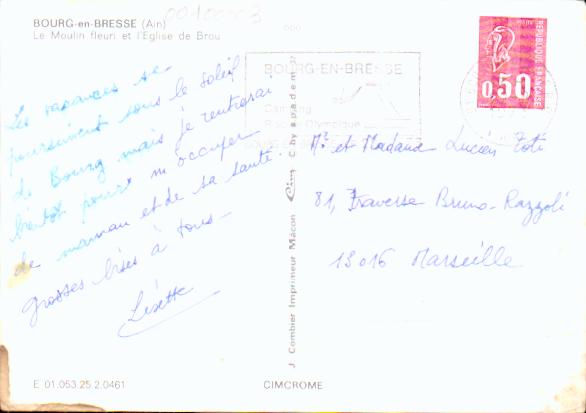 00100003
BOURG-en-BRESSE (Ain)
Le Moulin fleuri et l'Eglise de Brou
000
Les vacances se
poursuivent sous le soleil
de Bourg mais je rentrerai
bientôt pour m'occuper
de maman et de sa santé.
Grosses bises à tous -
Lisette
E 01.053.25.2.0461
BOURG-EN-BRESSE
Camping
Piscine Olympique
J. Combier Imprimeur Mâcon Cim C by s.p.a.d.e.m.
CIMCROME
REPUBLIQUE FRANÇAISE
0,50
Mr et Madame Lucien Toti
81, Traverse Bruno-Razzoli
13016 Marseille